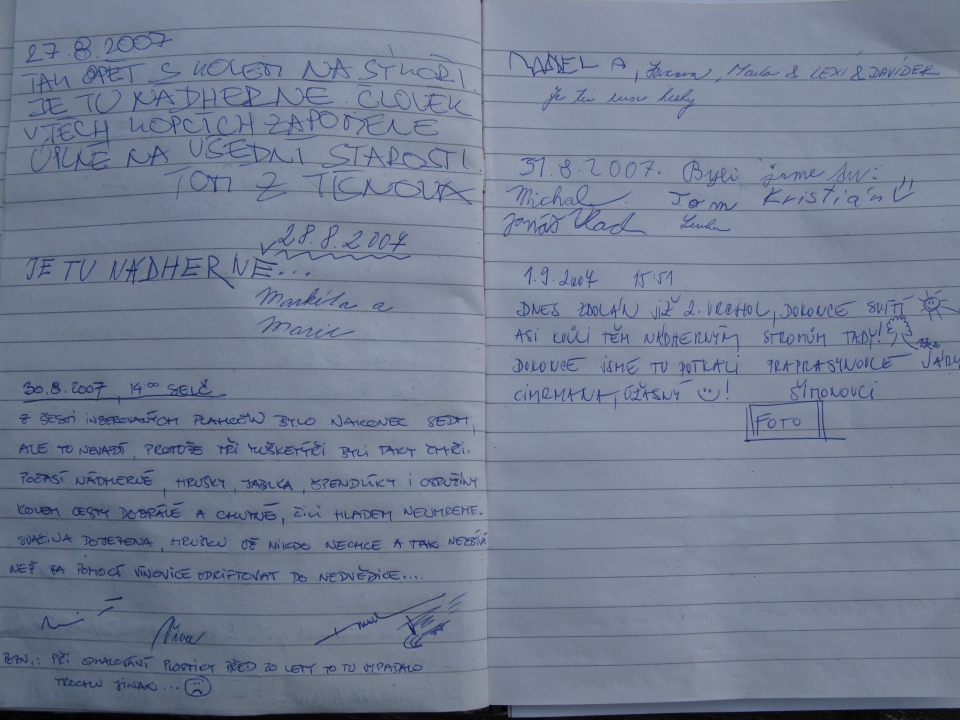 27.8.2007
TAK OPĚT S KOLEM NA SÝKOŘI
JE TU NÁDHERNĚ. ČLOVĚK
V TĚCH KOPCÍCH ZAPOMENE
ÚPLNĚ NA VŠEDNÍ STAROSTI.
TOM Z TIŠNOVA
28.8.2007
JE TU NÁDHERNĚ...
Markéta a
Marie
30.8.2007, 14⁰⁰ SELČ
Z ŠESTI INZEROVANÝCH PLAVČÍKŮ BYLO NAKONEC SEDM,
ALE TO NEVADÍ, PROTOŽE TŘI MUŠKETÝŘI BYLI TAKY ČTYŘI.
POČASÍ NÁDHERNÉ, HRUŠKY, JABLKA, ŠPENDLÍKY I OSTRUŽINY
KOLEM CESTY DOZRÁLÉ A CHUTNÉ, ČILI HLADEM NEUMŘEME.
SVAČINA DOJEZENA, HRUŠKU UŽ NIKDO NECHCE A TAK NEZBÝVÁ
NEŽ ZA POMOCI VÍNOVICE ODRIFTOVAT DO NEDVĚDICE...
POZN.: PŘI OMALOVÁNÍ PŘED 20 LETY TO TU VYPADALO
TROCHU JINAK... ☹
DANIELA, & LEXÍ & DAVÍDEK
Je tu moc hezky
31.8.2007. Byli jsme tu:
Michal Tom Kristián
Jonáš Vlad Lenka
1.9.2007 15:51
DNES ZDOLÁN JIŽ 2. VRCHOL, DOKONCE SVÍTÍ
ASI KVŮLI TĚM NÁDHERNÝM STROMŮM TADY!
DOKONCE JSME TU POTKALI PRAPRASYNOVCE JÁRY
CIMRMANA, ÚŽASNÝ ☺!
ŠIMONOVCI
FOTO